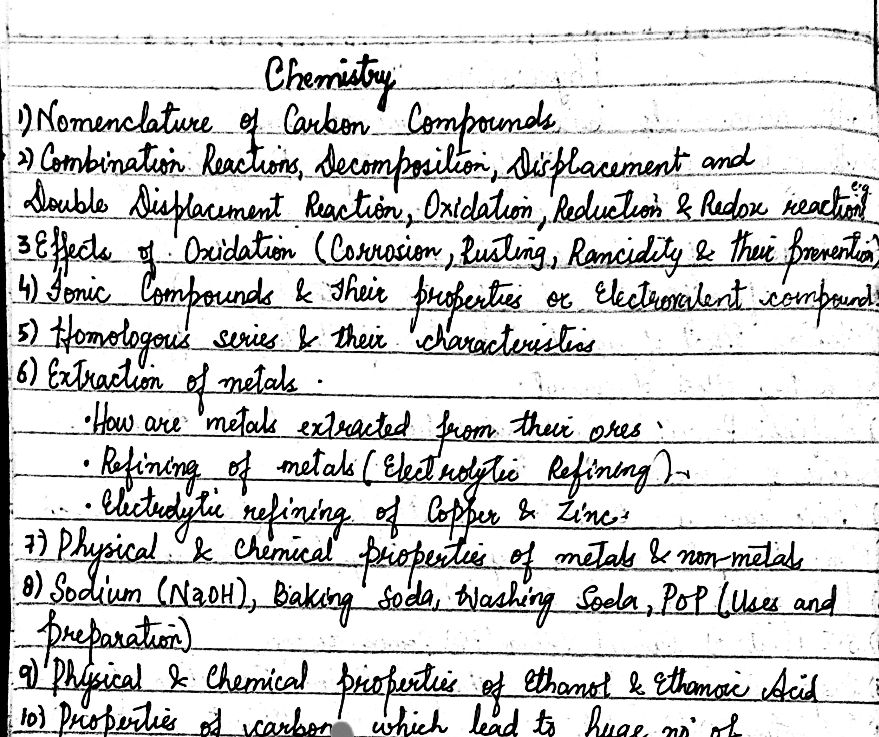 Chemistry
1) Nomenclature of Carbon Compounds
2) Combination Reactions, Decomposition, Displacement and
Double Displacement Reaction, Oxidation, Reduction & Redox reaction e.g.
3 Effects of Oxidation (Corrosion, Rusting, Rancidity & their prevention)
4) Ionic Compounds & Their properties or Electrovalent compound.
5) Homologous series & their characteristics
6) Extraction of metals.
• How are metals extracted from their ores.
• Refining of metals (Electrolytic Refining)
• Electrolytic refining of Copper & Zinc.
7) Physical & Chemical properties of metals & non-metals
8) Sodium (NaOH), Baking Soda, Washing Soda, POP (Uses and
preparation)
9) Physical & Chemical properties of Ethanol & Ethanoic Acid
10) Properties of carbon which lead to huge no. of